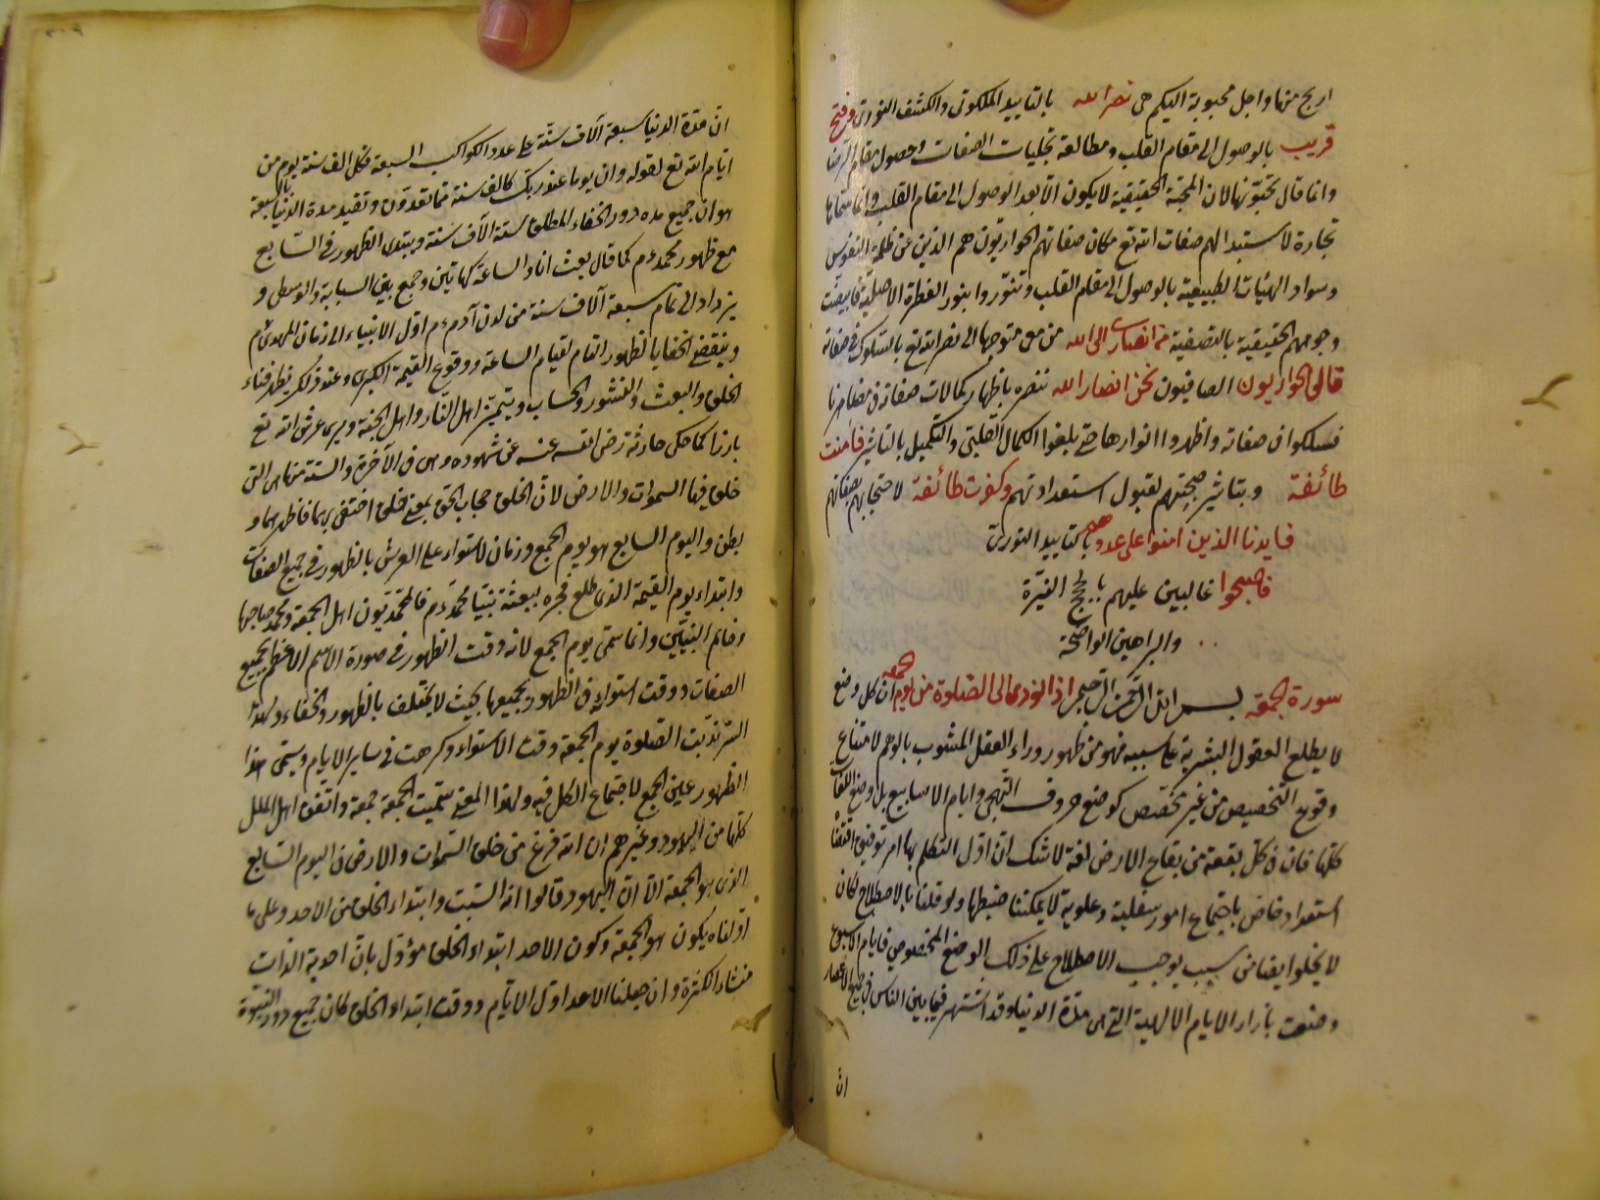 اربح منها واجل محبوبة اليكم هى نصر الله بالتاييد الملكوتى والكشف النورى وفتح
قريب بالوصول الى مقام القلب ومطالعة تجليات الصفات وحصول مقام الرضا
وانما قال تحبونها لان المحبة الحقيقية لا يكون الا بعد الوصول الى مقام القلب وانما سماها
تجارة لاستبدالهم صفات الله تع مكان صفاتهم الحواريون هم الذين عن ظلمة النفوس
وسواد الهيئات الطبيعية بالوصول الى مقام القلب وتنوروا بنور الفطرة الاصلية فابيضت
وجوههم الحقيقية بالتصفية من انصارى الى الله من معى متوجها الى نصر الله تع بالسلوك فى صفاته
قال الحواريون الصافيون نحن انصار الله ننصره باظهار كمالات صفاته فى مظاهرنا
فسلكوا فى صفاته واظهروا انوارها حتى بلغوا الكمال القلبى والتكميل بالتاثير فآمنت
طائفة وبتاثير صحبتهم لقبول استعداداتهم وكفرت طائفة لاحتجابهم بصفاتهم
فايدنا الذين امنوا على عدوهم بالتاييد النورى
فاصبحوا غالبين عليهم بالحجج النيرة
والبراهين الواضحة
سورة الجمعة بسم الله الرحمن الرحيم اذا نودى الى الصلوة من يوم الجمعة ان كل وضع
لا يطلع العقول البشرية على سببه فهو من ظهور وراء العقل المشوب بالوهم لامتناع
وقوع التخصيص من غير مخصص كوضع حروف التهجى وايام الاسابيع بل وضع اللغات
كلها فان فى كل بقعة من بقاع الارض لغة لا شك ان اول التكلم بها امر توفيقى اقتضاه
استعداد خاص باجتماع امور سفلية وعلوية لا يمكننا ضبطها ولو قلنا بالاصطلاح لكان
لا يخلو ايضا من سبب يوجب الاصطلاح على ذلك الوضع المخصوص فايام الاسبوع
وضعت بازاء الايام الالهية التى هى مدة الدنيا وقد اشتهر فيما بين الناس فى جميع الاعصار
ان
ان مدة الدنيا سبعة آلاف سنة على عدد الكواكب السبعة فكل الف سنة يوم من
ايام الله تع لقوله وان يوما عند ربك كالف سنة مما تعدون وتقييد مدة الدنيا بالسبعة
هو ان جميع مدة دور الخفاء المطلق ستة الآف سنة ويبتدى الظهور فى السابع
مع ظهور محمد ع م كما قال بعثت انا والساعة كهاتين وجمع بين السبابة والوسطى و
يزداد الى تمام سبعة آلاف سنة من لدن آدم ع م اول الانبياء الى زمان المهدى ع م
وينقضى الخفايا لظهور التام لقيام الساعة ووقوع القيمة الكبرى وعند ذلك يظهر فناء
الخلق والبعث والنشور والحساب ويتميز اهل النار واهل الجنة ويرى عرش الله تع
بارزا كما حكى حارثة رضى الله عنه عن شهوده وهى فى الآخرة والستة منها هى التى
خلق فيها السموات والارض لان الخلق حجاب الحق بمعنى خلق اختفى بهما فاظهرهما و
بطن واليوم السابع هو يوم الجمع وزمان الاستواء على العرش بالظهور فى جميع الصفات
وابتداء يوم القيمة الذى طلع فجره ببعثة نبينا محمد ع م فالمحمديون اهل الجمعة ومحمد صاحبها
وخاتم النبيين وانما سمى يوم الجمع لانه وقت الظهور فى صورة الاسم الاعظم لجميع
الصفات ووقت استوائه فى الظهور بجميعها بحيث لا يختلف بالظهور والخفاء ولهذا
السر ندبت الصلوة يوم الجمعة وقت الاستواء وكرهت فى سائر الايام ويسمى هذا
الظهور عين الجمع لاجتماع الكل فيه ولهذا المعنى سميت الجمعة جمعة واتفق اهل الملل
كلها من اليهود وغيرهم ان الله فرغ من خلق السموات والارض فى اليوم السابع
الذى هو الجمعة الا ان اليهود قالوا انه السبت وابتداء الخلق من الاحد وعلى ما
اولناه يكون هو الجمعة وكون الاحد ابتداء الخلق مؤول بان احدية الذات
منشاء الكثرة وان جعلنا الاحد اول الايام ووقت ابتداء الخلق كان جميع دور النبوة